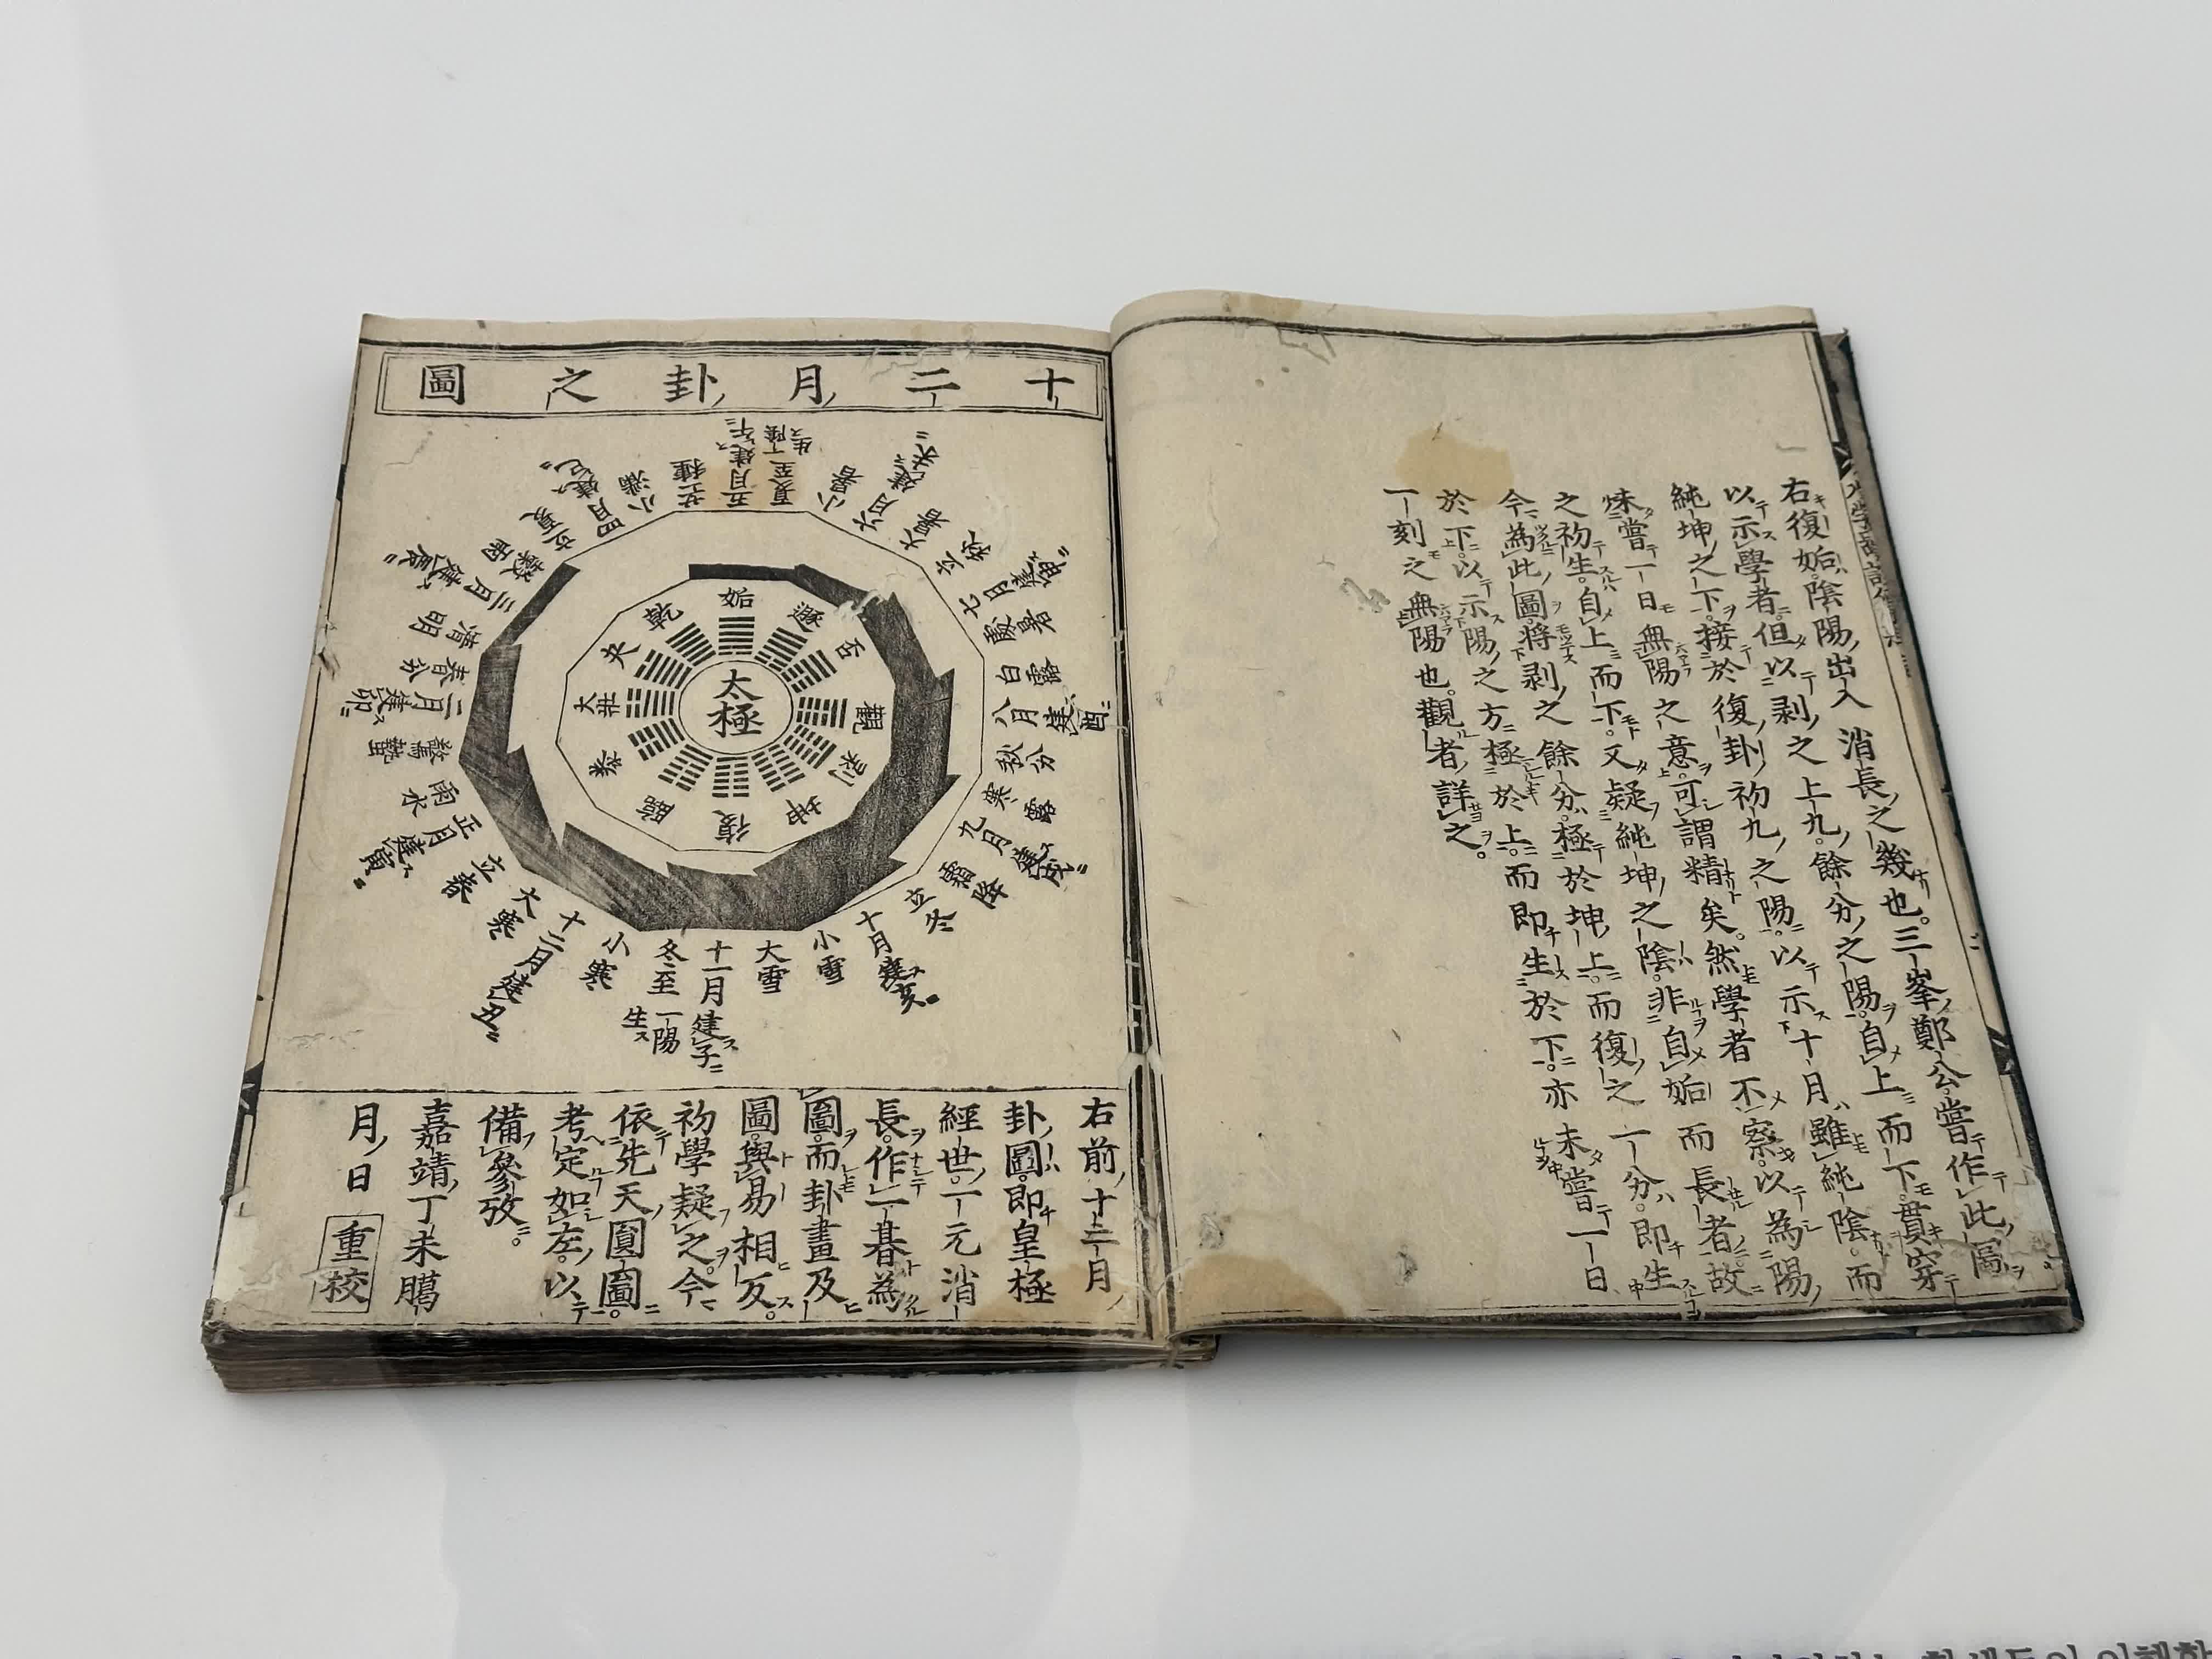 右復姤。陰陽出入消長之幾也。三峯鄭公嘗作此圖
以示學者但以剥之上九。餘分之陽自上而下。貫穿
純坤之下。接於復卦初九之陽。以示十月雖純陰而
未嘗一日無陽之意。可謂精矣。然學者不察以為陽
之初生。自上而下。又疑純坤之陰非自姤而長者故
今為此圖將剥之餘分。極於坤上而復之一分即生
於下。以示陽之方極於上。而即生於下。亦未嘗一日
一刻之無陽也。觀者詳之。
十二月卦之圖
太極
復
臨
泰
大壯
夬
乾
姤
遯
否
觀
剥
坤
十一月建子
冬至一陽生
小寒
十二月建丑
大寒
立春
正月建寅
雨水
驚蟄
二月建卯
春分
清明
三月建辰
穀雨
立夏
四月建巳
小滿
芒種
五月建午
夏至一陰生
小暑
六月建未
大暑
立秋
七月建申
處暑
白露
八月建酉
秋分
寒露
九月建戌
霜降
立冬
十月建亥
小雪
大雪
右前十二月
卦圖。即皇極
經世。一元消
長。作一朞為
圖。而卦畫及
圖。與易相反。
初學疑之。今
依先天圓圖。
考定如左。以
備參攷。
嘉靖丁未臈
月日 重校